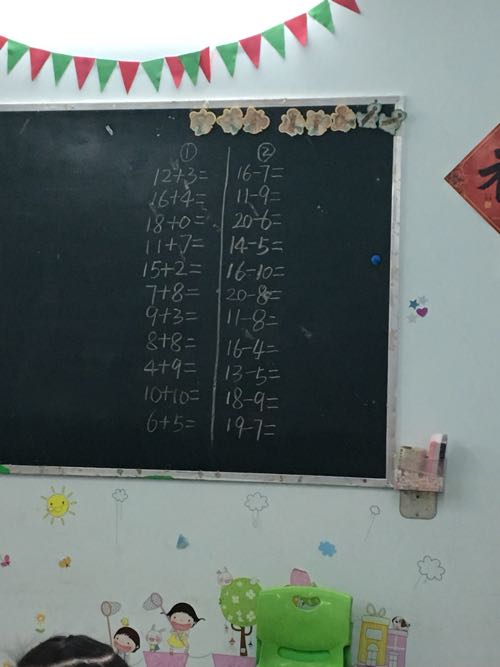 ①
12+3=
16+4=
18+0=
11+7=
15+2=
7+8=
9+3=
8+8=
4+9=
10+10=
6+5=
②
16-7=
11-9=
20-6=
14-5=
16-10=
20-8=
11-8=
16-4=
13-5=
18-9=
19-7=